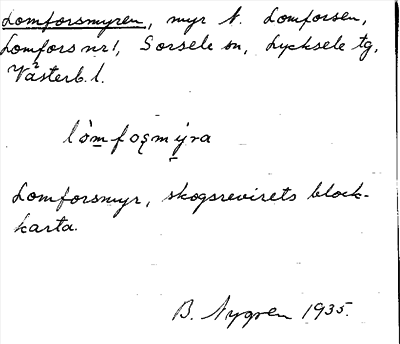 Lomforsmyren, myr V. Lomforsen,
Lomfors nr 1, Sorsele sn, Lycksele tg,
Västerb. l.
lòmfoʂmýra
Lomforsmyr, skogsrevirets block-
karta.
B. Nygren 1935.